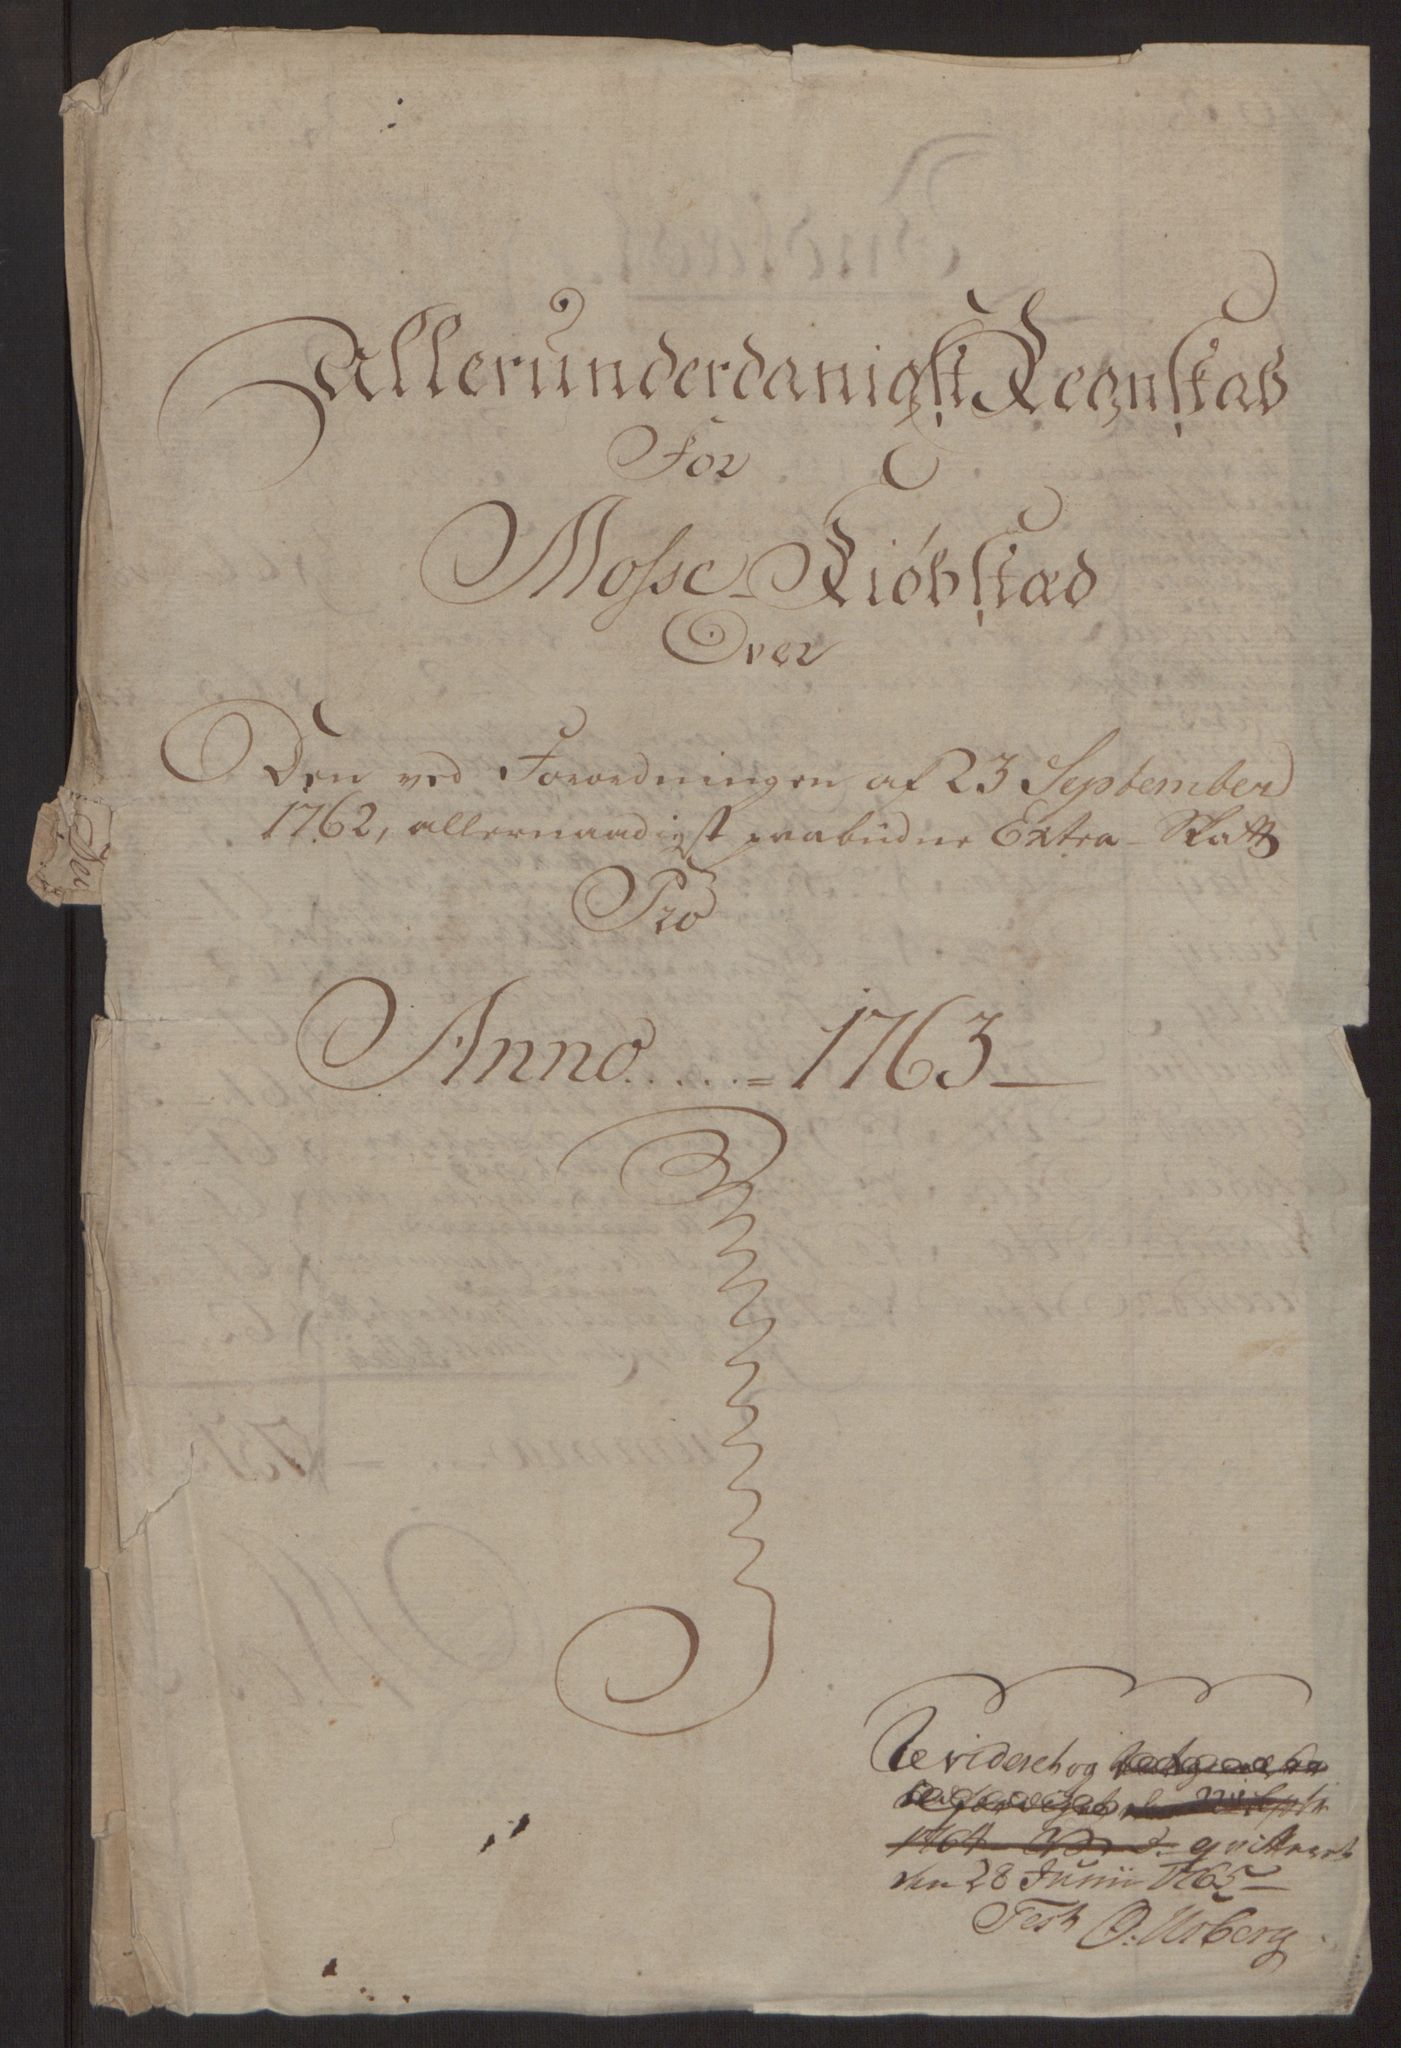 Allerunderdanigst Regnskab
For
Mosse Kiöbstæd
Over
Den ved Forordningen af 23 September
1762, allernaadigst paabudne Extra-Skatt
Pro
Anno.....= 1763
Revideret og
1764 qvitteret
den 28 Junii 1765
Test O. Urberg